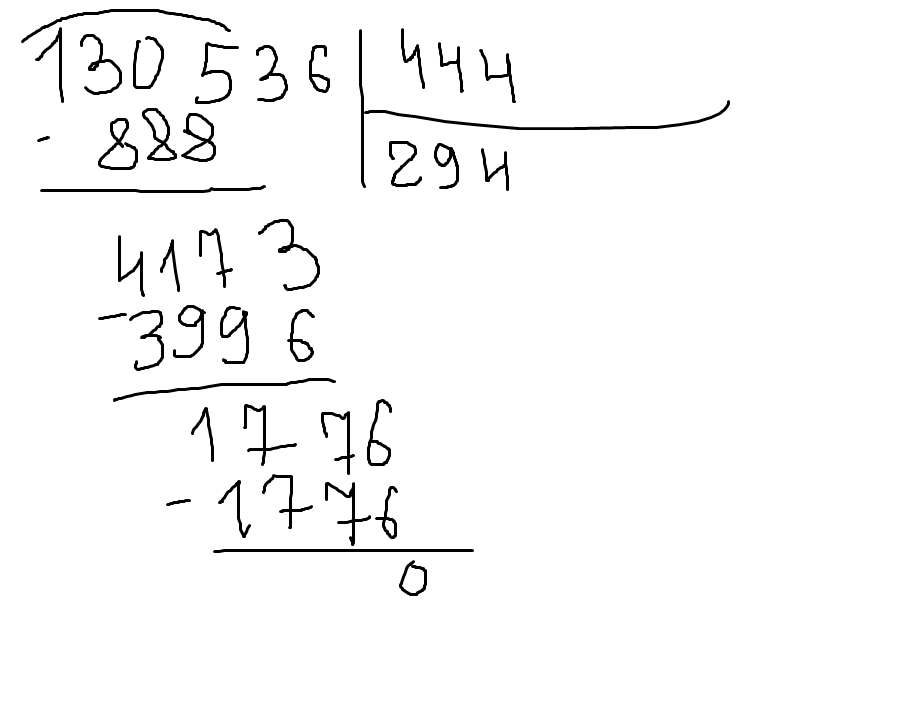 130 536 444
- 888 294
4173
- 3996
1776
- 1776
0